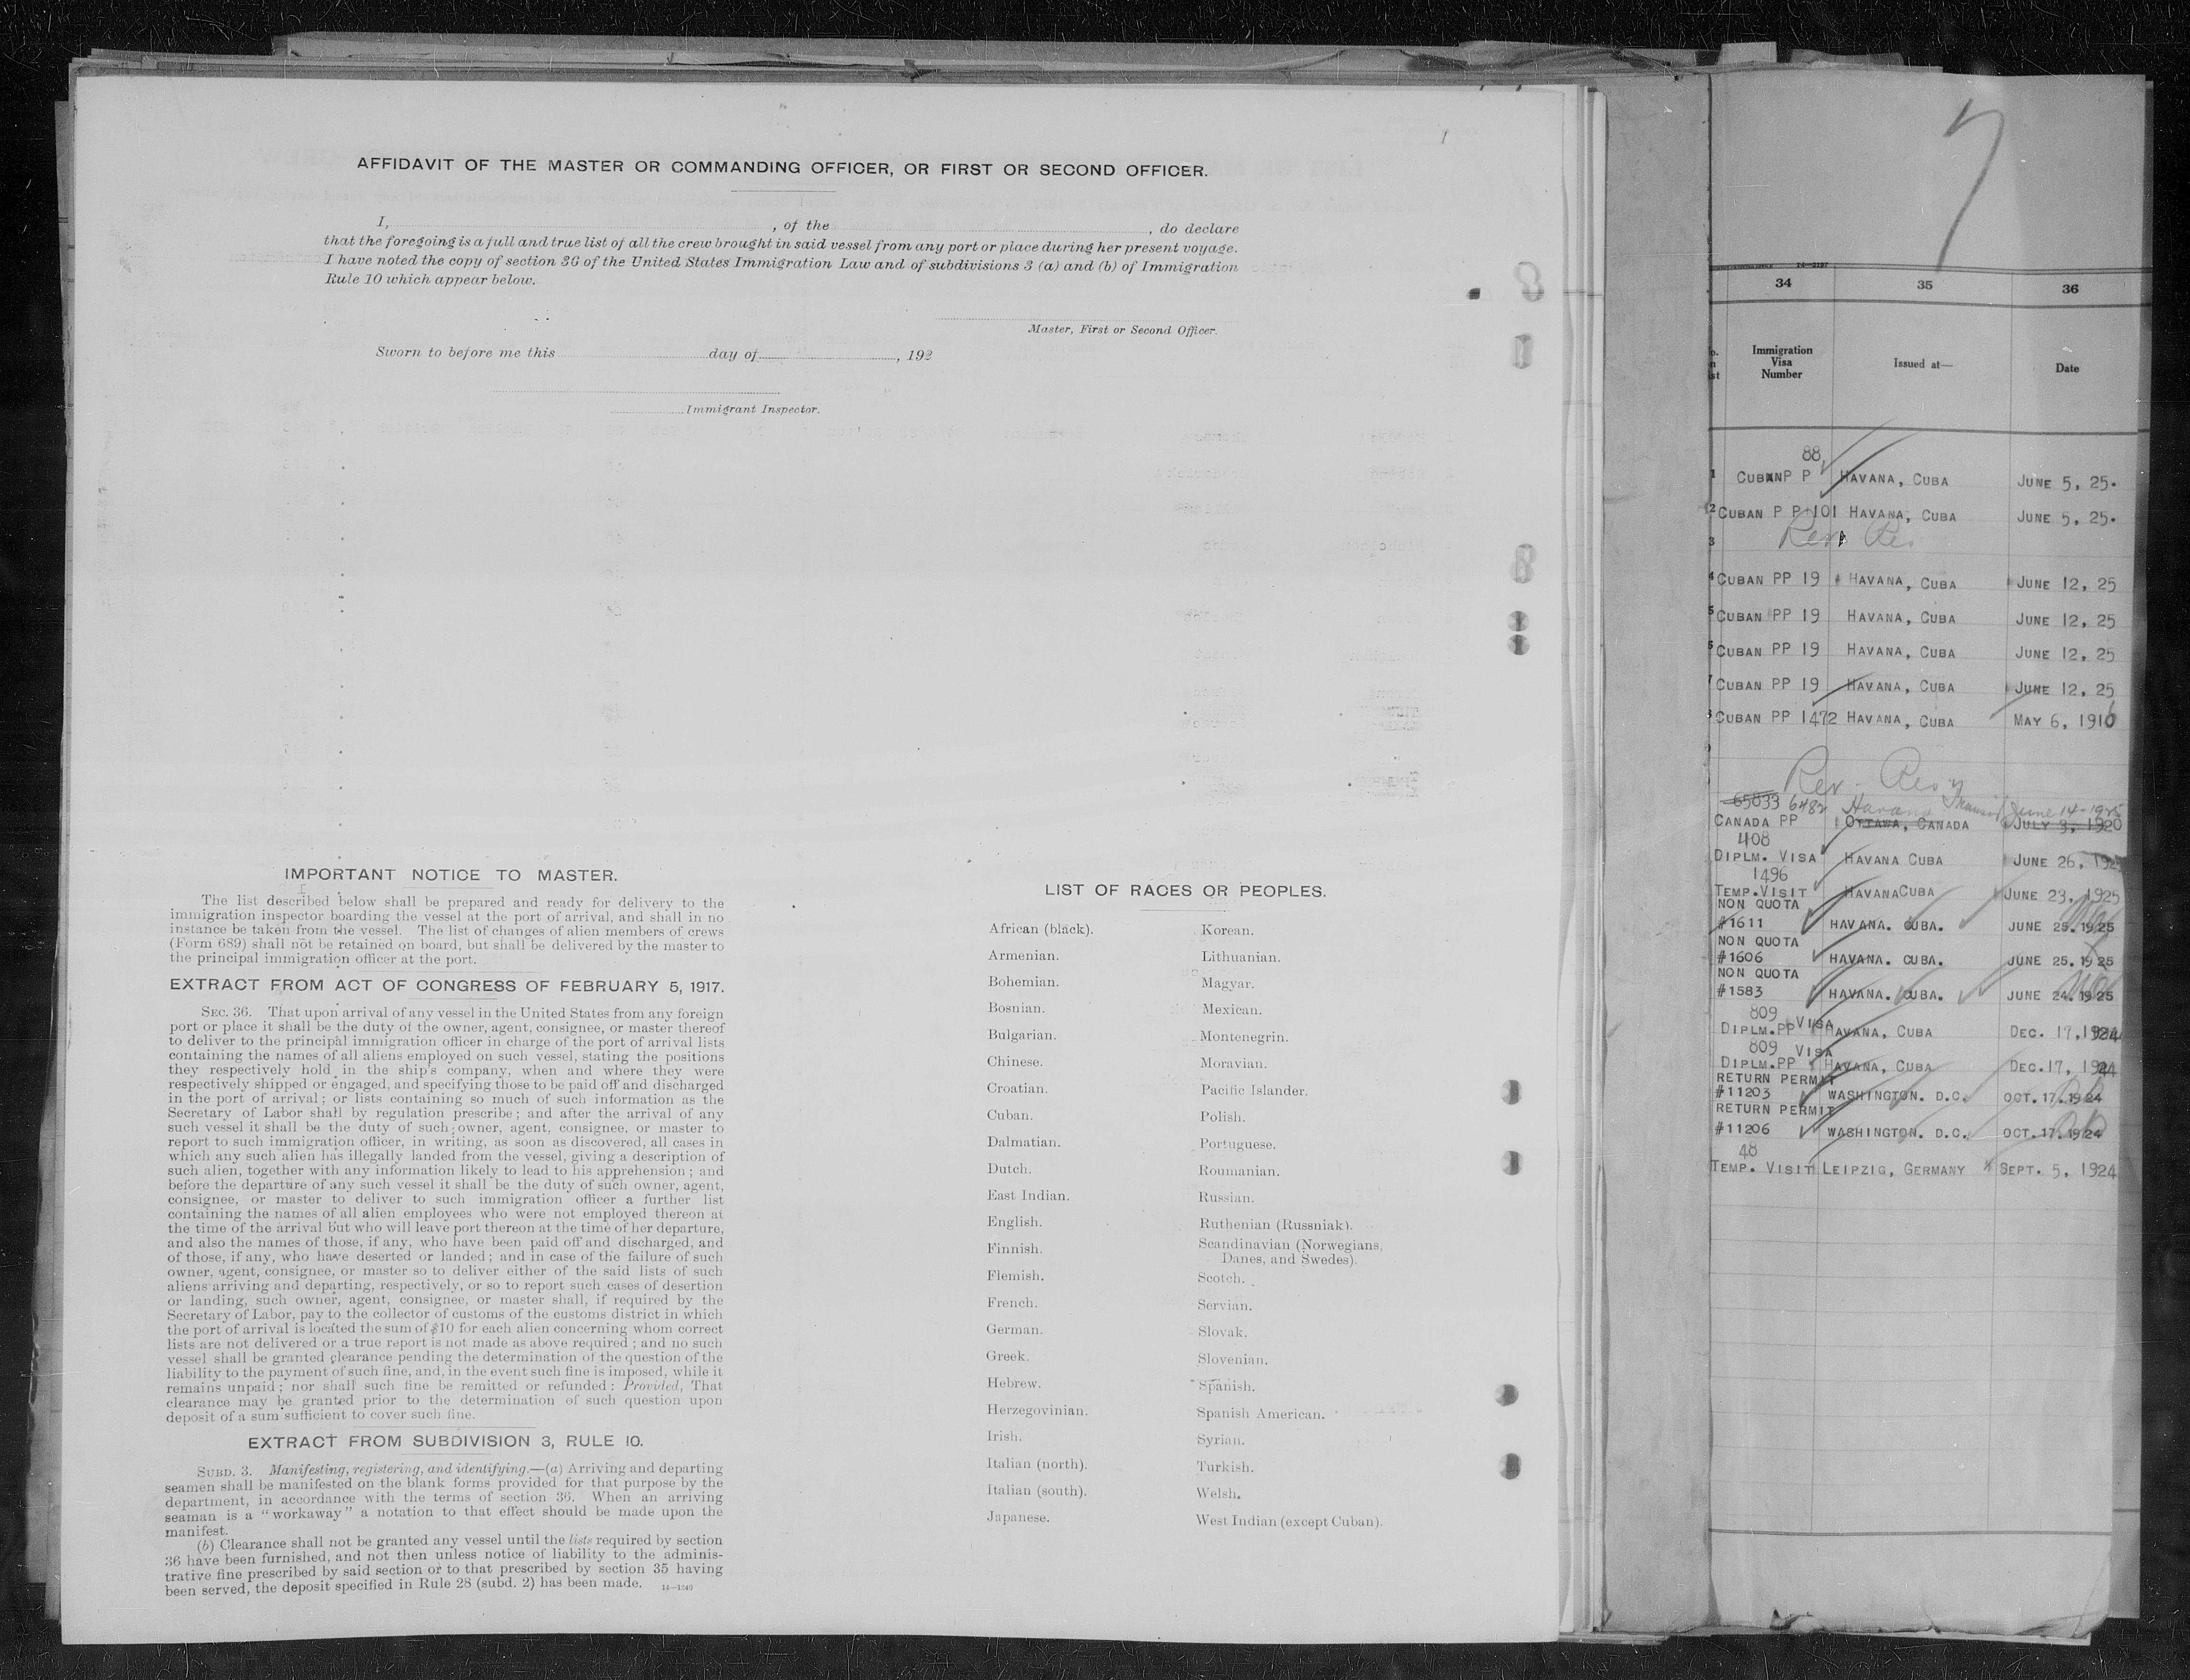 AFFIDAVIT OF THE MASTER OR COMMANDING OFFICER, OR FIRST OR SECOND OFFICER.
I, , of the , do declare
that the foregoing is a full and true list of all the crew brought in said vessel from any port or place during her present voyage.
I have noted the copy of section 36 of the United States Immigration Law and of subdivisions 3 (a) and (b) of Immigration
Rule 10 which appear below.
Master, First or Second Officer.
Sworn to before me this day of , 192
Immigrant Inspector.
IMPORTANT NOTICE TO MASTER.
The list described below shall be prepared and ready for delivery to the
immigration inspector boarding the vessel at the port of arrival, and shall in no
instance be taken from the vessel. The list of changes of alien members of crews
(Form 689) shall not be retained on board, but shall be delivered by the master to
the principal immigration officer at the port.
EXTRACT FROM ACT OF CONGRESS OF FEBRUARY 5, 1917.
SEC. 36. That upon arrival of any vessel in the United States from any foreign
port or place it shall be the duty of the owner, agent, consignee, or master thereof
to deliver to the principal immigration officer in charge of the port of arrival lists
containing the names of all aliens employed on such vessel, stating the positions
they respectively hold in the ship's company, when and where they were
respectively shipped or engaged, and specifying those to be paid off and discharged
in the port of arrival; or lists containing so much of such information as the
Secretary of Labor shall by regulation prescribe; and after the arrival of any
such vessel it shall be the duty of such owner, agent, consignee, or master to
report to such immigration officer, in writing, as soon as discovered, all cases in
which any such alien has illegally landed from the vessel, giving a description of
such alien, together with any information likely to lead to his apprehension; and
before the departure of any such vessel it shall be the duty of such owner, agent,
consignee, or master to deliver to such immigration officer a further list
containing the names of all alien employees who were not employed thereon at
the time of the arrival but who will leave port thereon at the time of her departure,
and also the names of those, if any, who have been paid off and discharged, and
of those, if any, who have deserted or landed; and in case of the failure of such
owner, agent, consignee, or master so to deliver either of the said lists of such
aliens arriving and departing, respectively, or so to report such cases of desertion
or landing, such owner, agent, consignee, or master shall, if required by the
Secretary of Labor, pay to the collector of customs of the customs district in which
the port of arrival is located the sum of $10 for each alien concerning whom correct
lists are not delivered or a true report is not made as above required; and no such
vessel shall be granted clearance pending the determination of the question of the
liability to the payment of such fine, and, in the event such fine is imposed, while it
remains unpaid; nor shall such fine be remitted or refunded: Provided, That
clearance may be granted prior to the determination of such question upon
deposit of a sum sufficient to cover such fine.
EXTRACT FROM SUBDIVISION 3, RULE 10.
SUBD. 3. Manifesting, registering, and identifying.—(a) Arriving and departing
seamen shall be manifested on the blank forms provided for that purpose by the
department, in accordance with the terms of section 36. When an arriving
seaman is a "workaway" a notation to that effect should be made upon the
manifest.
(b) Clearance shall not be granted any vessel until the lists required by section
36 have been furnished, and not then unless notice of liability to the adminis-
trative fine prescribed by said section or to that prescribed by section 35 having
been served, the deposit specified in Rule 28 (subd. 2) has been made. 14—1240
LIST OF RACES OR PEOPLES.
African (black). Korean.
Armenian. Lithuanian.
Bohemian. Magyar.
Bosnian. Mexican.
Bulgarian. Montenegrin.
Chinese. Moravian.
Croatian. Pacific Islander.
Cuban. Polish.
Dalmatian. Portuguese.
Dutch. Roumanian.
East Indian. Russian.
English. Ruthenian (Russniak).
Finnish. Scandinavian (Norwegians,
Danes, and Swedes).
Flemish. Scotch.
French. Servian.
German. Slovak.
Greek. Slovenian.
Hebrew. Spanish.
Herzegovinian. Spanish American.
Irish. Syrian.
Italian (north). Turkish.
Italian (south). Welsh.
Japanese. West Indian (except Cuban).
7
34 35 36
Immigration
Visa
Number
Issued at—
Date
88
1 CUBAN P P HAVANA, CUBA JUNE 5, 25.
2 CUBAN P P 101 HAVANA, CUBA JUNE 5, 25.
3
4 CUBAN PP 19 HAVANA, CUBA JUNE 12, 25
5 CUBAN PP 19 HAVANA, CUBA JUNE 12, 25
6 CUBAN PP 19 HAVANA, CUBA JUNE 12, 25
7 CUBAN PP 19 HAVANA, CUBA JUNE 12, 25
8 CUBAN PP 1472 HAVANA, CUBA MAY 6, 1916
65033 6482 Havana Transit June 14-1925
CANADA PP OTTAWA, CANADA JULY 3, 1920
408
DIPLM. VISA HAVANA CUBA JUNE 26, 1925
1496
TEMP. VISIT HAVANA CUBA JUNE 23, 1925
NON QUOTA
#1611 HAVANA. CUBA. JUNE 25. 1925
NON QUOTA
#1606 HAVANA. CUBA. JUNE 25. 1925
NON QUOTA
#1583 HAVANA. CUBA. JUNE 24. 1925
809
DIPLM. PP VISA HAVANA, CUBA DEC. 17, 1924
809
DIPLM. PP VISA HAVANA, CUBA DEC. 17, 1924
RETURN PERMIT
#11203 WASHINGTON. D.C. OCT. 17. 1924
RETURN PERMIT
#11206 WASHINGTON. D.C. OCT. 17. 1924
48
TEMP. VISIT LEIPZIG, GERMANY SEPT. 5, 1924